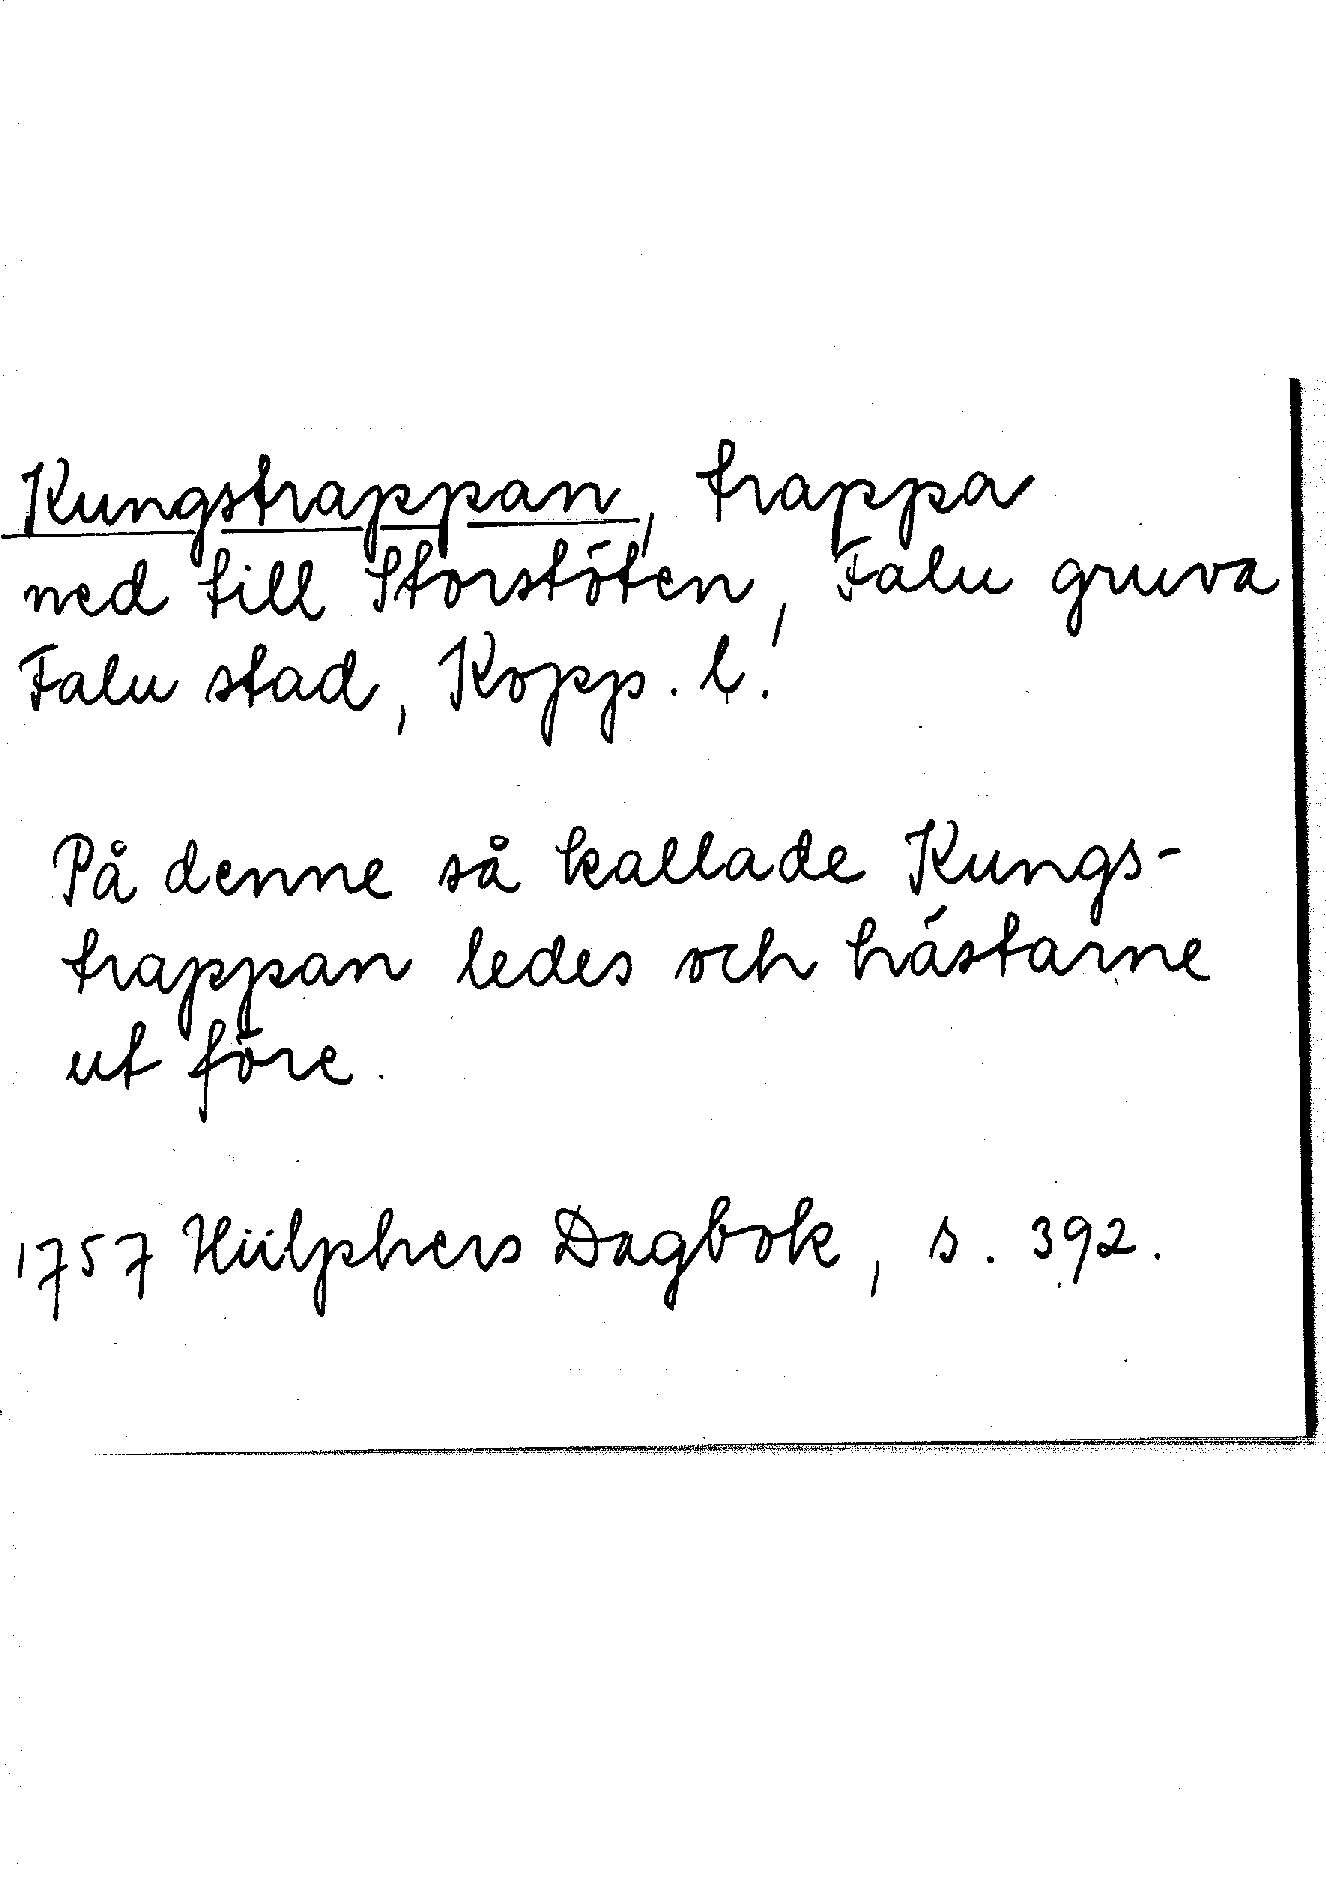 Kungstrappan, trappa
ned till Storstöten, Falu gruva
Falu stad, Kopp. l.
På denne så kallade Kungs-
trappan ledes och hästarne
ut före.
1757 Hülphers Dagbok, s. 392.